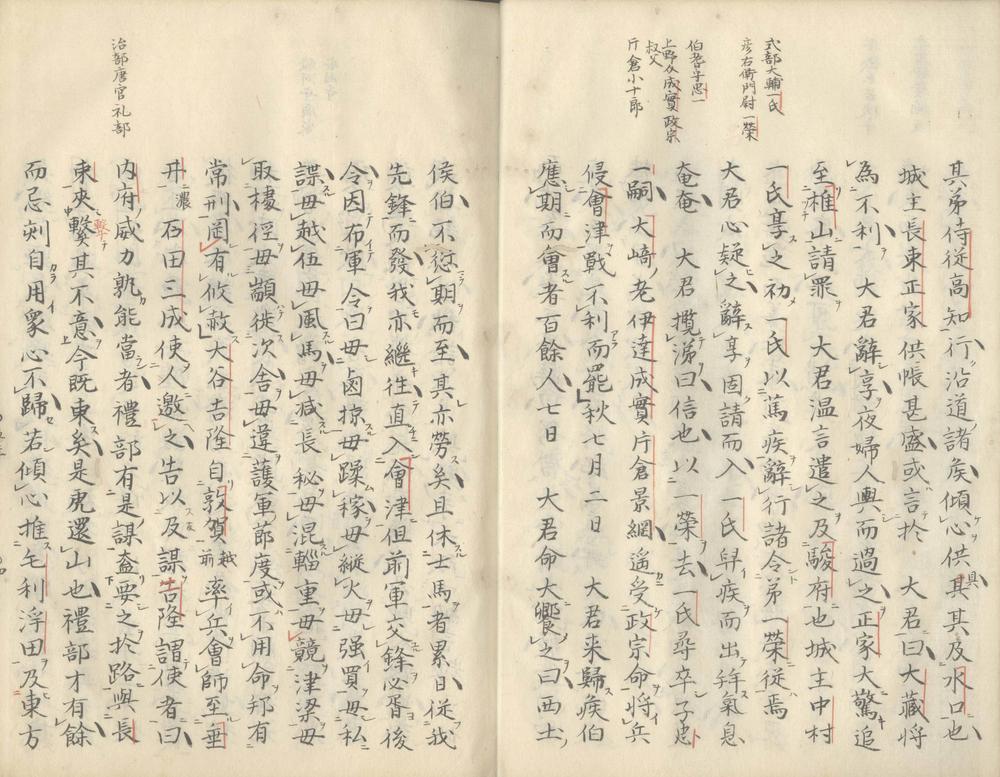 式部大輔一氏
彦右衛門尉一榮
伯耆守忠一
上野介成實政宗
叔父
片倉小十郎
其弟侍從高知行沿道諸矦傾心供其其及水口也
城主長束正家供帳甚盛或言於　大君曰大藏將
為不利　大君辭享夜婦人輿而過之正家大驚追
至推山請罪　大君温言遣之及駿府也城主中村
一氏享之初一氏以篤疾辭行諸令弟一榮從焉
大君心疑之辭享固請而入一氏舁疾而出拜氣息
奄奄　大君攬涕曰信也以一榮去一氏尋卒子忠
一嗣大﨑老伊達成實片倉景綱遙受政宗命將兵
侵會津戰不利而罷秋七月二日　大君来歸疾伯
應期而會者百餘人七日　大君命大饗之曰西土
侯伯不愆期而至其亦勞矣且休士馬者累日從我
先鋒而發我亦繼徃直入會津但前軍交鋒必胥後
令因布軍令曰毋鹵掠毋蹂稼毋縱火毋强買毋私
諜毋越伍毋風馬毋减長秘毋混輜重毋競津梁毋
取捷徑毋顓徙次舍毋違護軍節度或不用命邦有
常刑罔有攸赦大谷吉隆自敦賀越前率兵會師至垂
井濃石田三成使人邀之告以及謀吉隆謂使者曰
内府威力孰能當者禮部有是謀盍要之於路與長
東夾繫其不意今既東矣是虎還山也禮部才有餘
而忌剡自用衆心不歸若傾心推毛利浮田及東方
治部唐官礼部